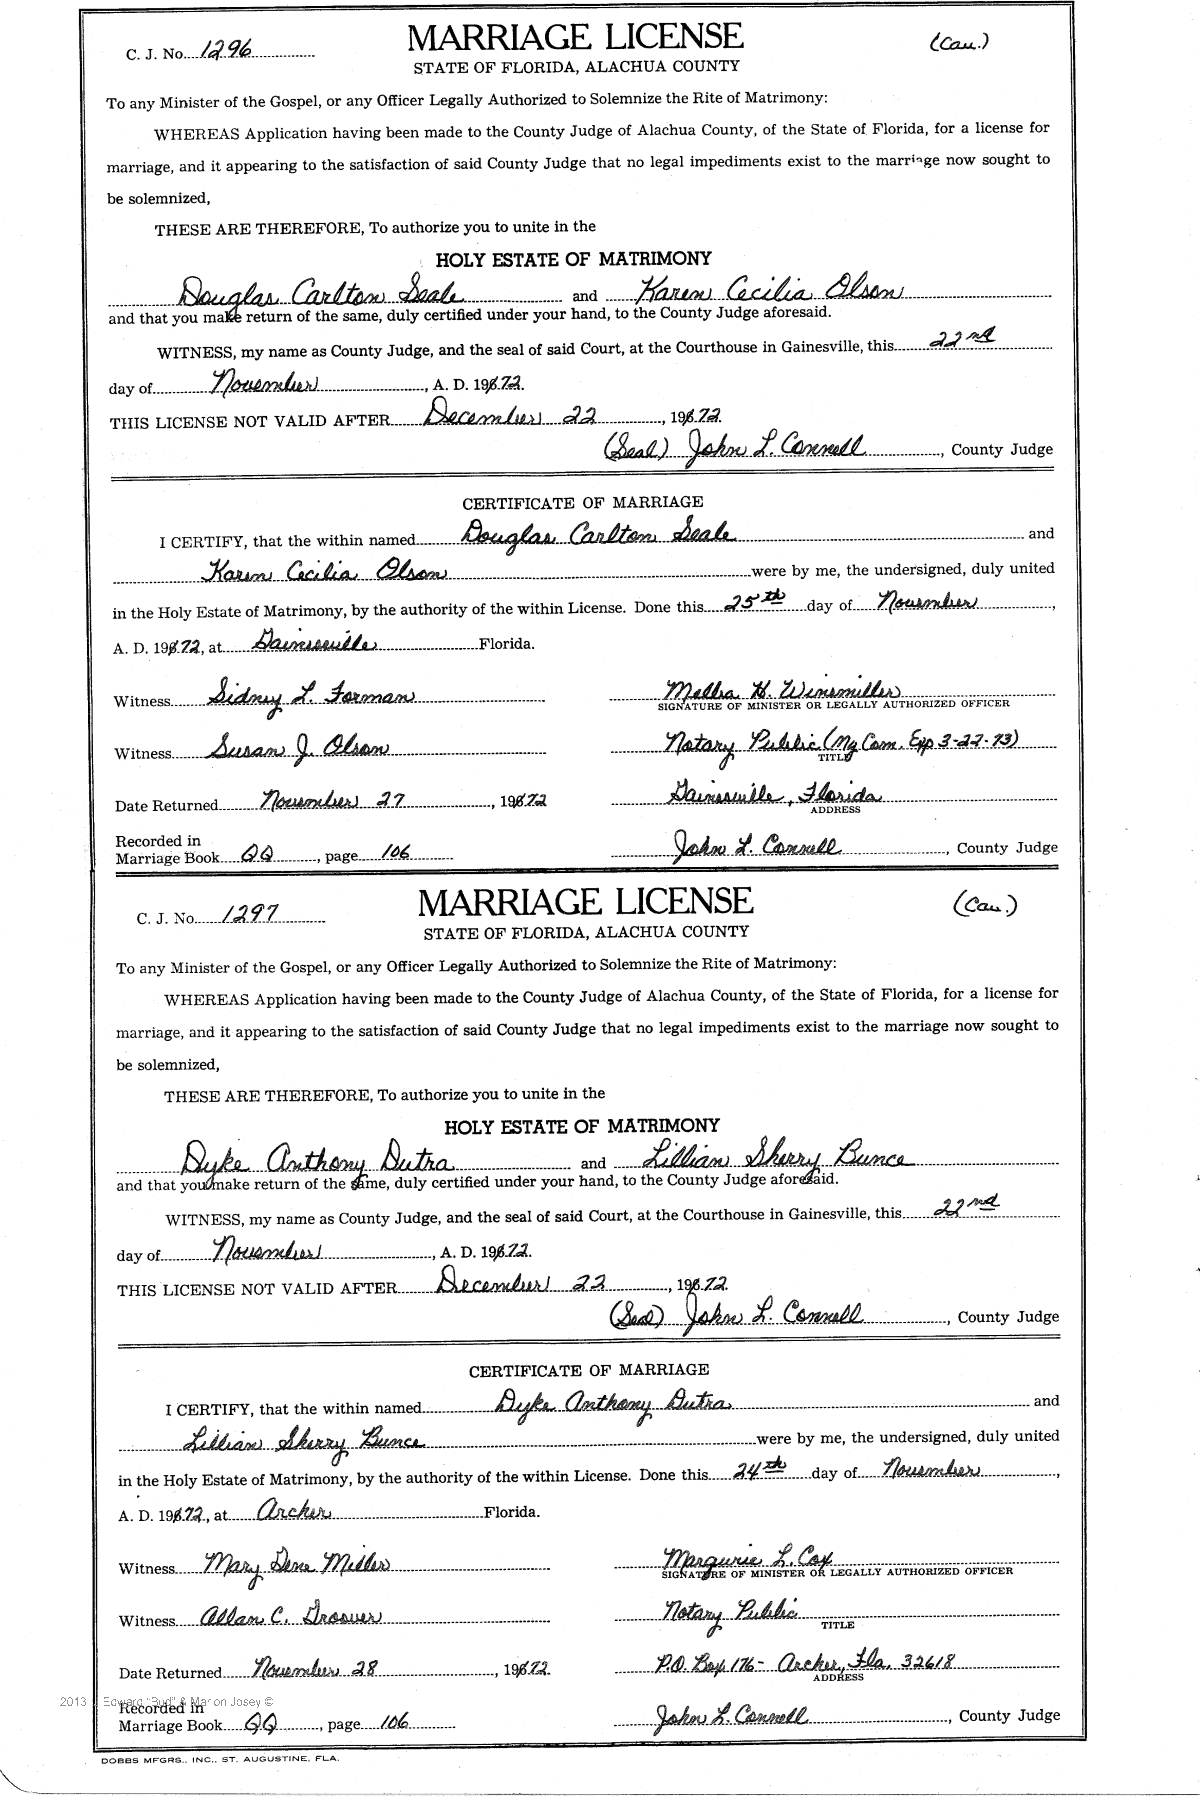 C. J. No. 1296
MARRIAGE LICENSE
(Cau.)
STATE OF FLORIDA, ALACHUA COUNTY
To any Minister of the Gospel, or any Officer Legally Authorized to Solemnize the Rite of Matrimony:
WHEREAS Application having been made to the County Judge of Alachua County, of the State of Florida, for a license for
marriage, and it appearing to the satisfaction of said County Judge that no legal impediments exist to the marriage now sought to
be solemnized,
THESE ARE THEREFORE, To authorize you to unite in the
HOLY ESTATE OF MATRIMONY
Douglas Carlton Seale and Karen Cecilia Olson
and that you make return of the same, duly certified under your hand, to the County Judge aforesaid.
WITNESS, my name as County Judge, and the seal of said Court, at the Courthouse in Gainesville, this 22nd
day of November, A. D. 1972.
THIS LICENSE NOT VALID AFTER December 22, 1972.
(Seal) John L. Connell, County Judge
CERTIFICATE OF MARRIAGE
I CERTIFY, that the within named Douglas Carlton Seale and
Karen Cecilia Olson were by me, the undersigned, duly united
in the Holy Estate of Matrimony, by the authority of the within License. Done this 25th day of November,
A. D. 1972, at Gainesville Florida.
Witness Sidney L. Forman
Melba H. Winsmiller
SIGNATURE OF MINISTER OR LEGALLY AUTHORIZED OFFICER
Witness Susan J. Olson
Notary Public (My Com. Exp 3-22-73)
TITLE
Date Returned November 27, 1972
Gainesville, Florida
ADDRESS
Recorded in
Marriage Book QQ, page 106
John L. Connell, County Judge
C. J. No. 1297
MARRIAGE LICENSE
(Cau.)
STATE OF FLORIDA, ALACHUA COUNTY
To any Minister of the Gospel, or any Officer Legally Authorized to Solemnize the Rite of Matrimony:
WHEREAS Application having been made to the County Judge of Alachua County, of the State of Florida, for a license for
marriage, and it appearing to the satisfaction of said County Judge that no legal impediments exist to the marriage now sought to
be solemnized,
THESE ARE THEREFORE, To authorize you to unite in the
HOLY ESTATE OF MATRIMONY
Dyke Anthony Dutra and Lillian Sherry Bunce
and that you make return of the same, duly certified under your hand, to the County Judge aforesaid.
WITNESS, my name as County Judge, and the seal of said Court, at the Courthouse in Gainesville, this 22nd
day of November, A. D. 1972.
THIS LICENSE NOT VALID AFTER December 22, 1972.
(Seal) John L. Connell, County Judge
CERTIFICATE OF MARRIAGE
I CERTIFY, that the within named Dyke Anthony Dutra and
Lillian Sherry Bunce were by me, the undersigned, duly united
in the Holy Estate of Matrimony, by the authority of the within License. Done this 24th day of November,
A. D. 1972, at Archer Florida.
Witness Mary Gene Miller
Margurie L. Cox
SIGNATURE OF MINISTER OR LEGALLY AUTHORIZED OFFICER
Witness Allan C. Groover
Notary Public
TITLE
Date Returned November 28, 1972.
P.O. Box 176- Archer, Fla. 32618
ADDRESS
2013 Edward "Bud" & Marion Josey ©
Recorded in
Marriage Book QQ, page 106
John L. Connell, County Judge
DOBBS MFGRS., INC., ST. AUGUSTINE, FLA.